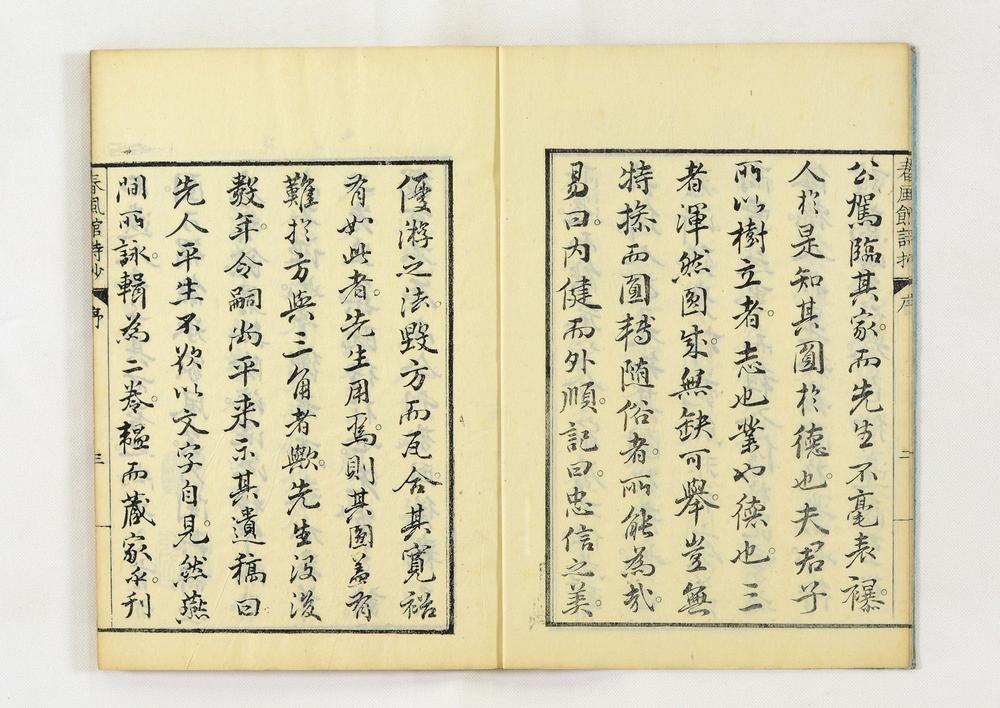 春風館詩抄
序
二
公駕臨其家。而先生不毫表襮。
人於是知其圓於德也。夫君子
所以樹立者。志也業也德也。三
者渾然圓成無缺可舉。豈無
特操而圓轉隨俗者。所能為哉。
易曰。内健而外順。記曰。忠信之美。
優游之法。毀方而瓦合。其寬裕
有如此者。先生用焉。則其圓蓋有
難於方與三角者歟。先生沒後
數年。令嗣尚平来示其遺稿曰
先人平生不欲以文字自見。然燕
間所詠。輯為二卷。韞而藏家。永刊
春風館詩抄
序
三